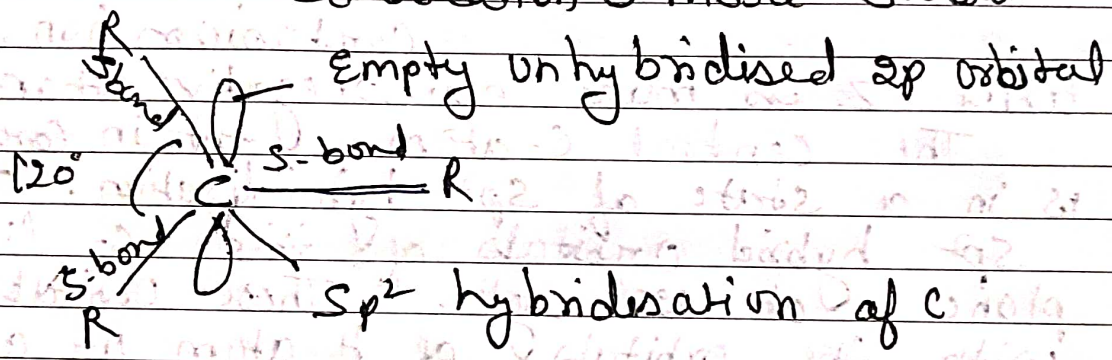 R
Empty unhybridised 2p orbital
120°
s-bond
C
R
s-bond
R
Sp² hybridisation of C